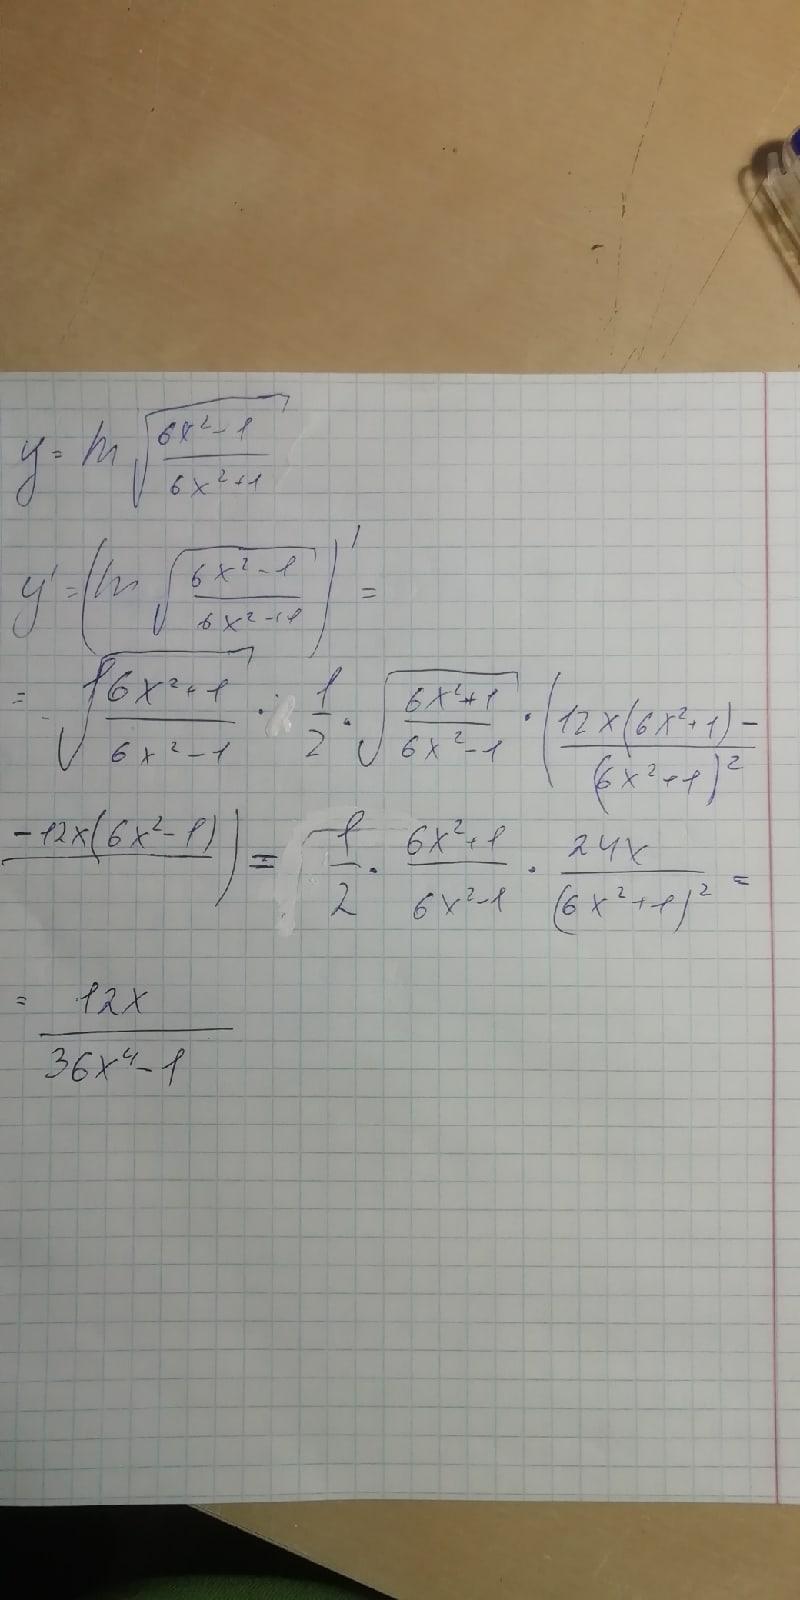 y = ln √((6x²-1)/(6x²+1))
y' = (ln √((6x²-1)/(6x²+1)))' =
= √((6x²+1)/(6x²-1)) · 1/2 · √((6x²+1)/(6x²-1)) · ((12x(6x²+1)-)/(6x²+1)²
-12x(6x²-1)) = 1/2 · (6x²+1)/(6x²-1) · 24x/(6x²+1)² =
= 12x/(36x⁴-1)